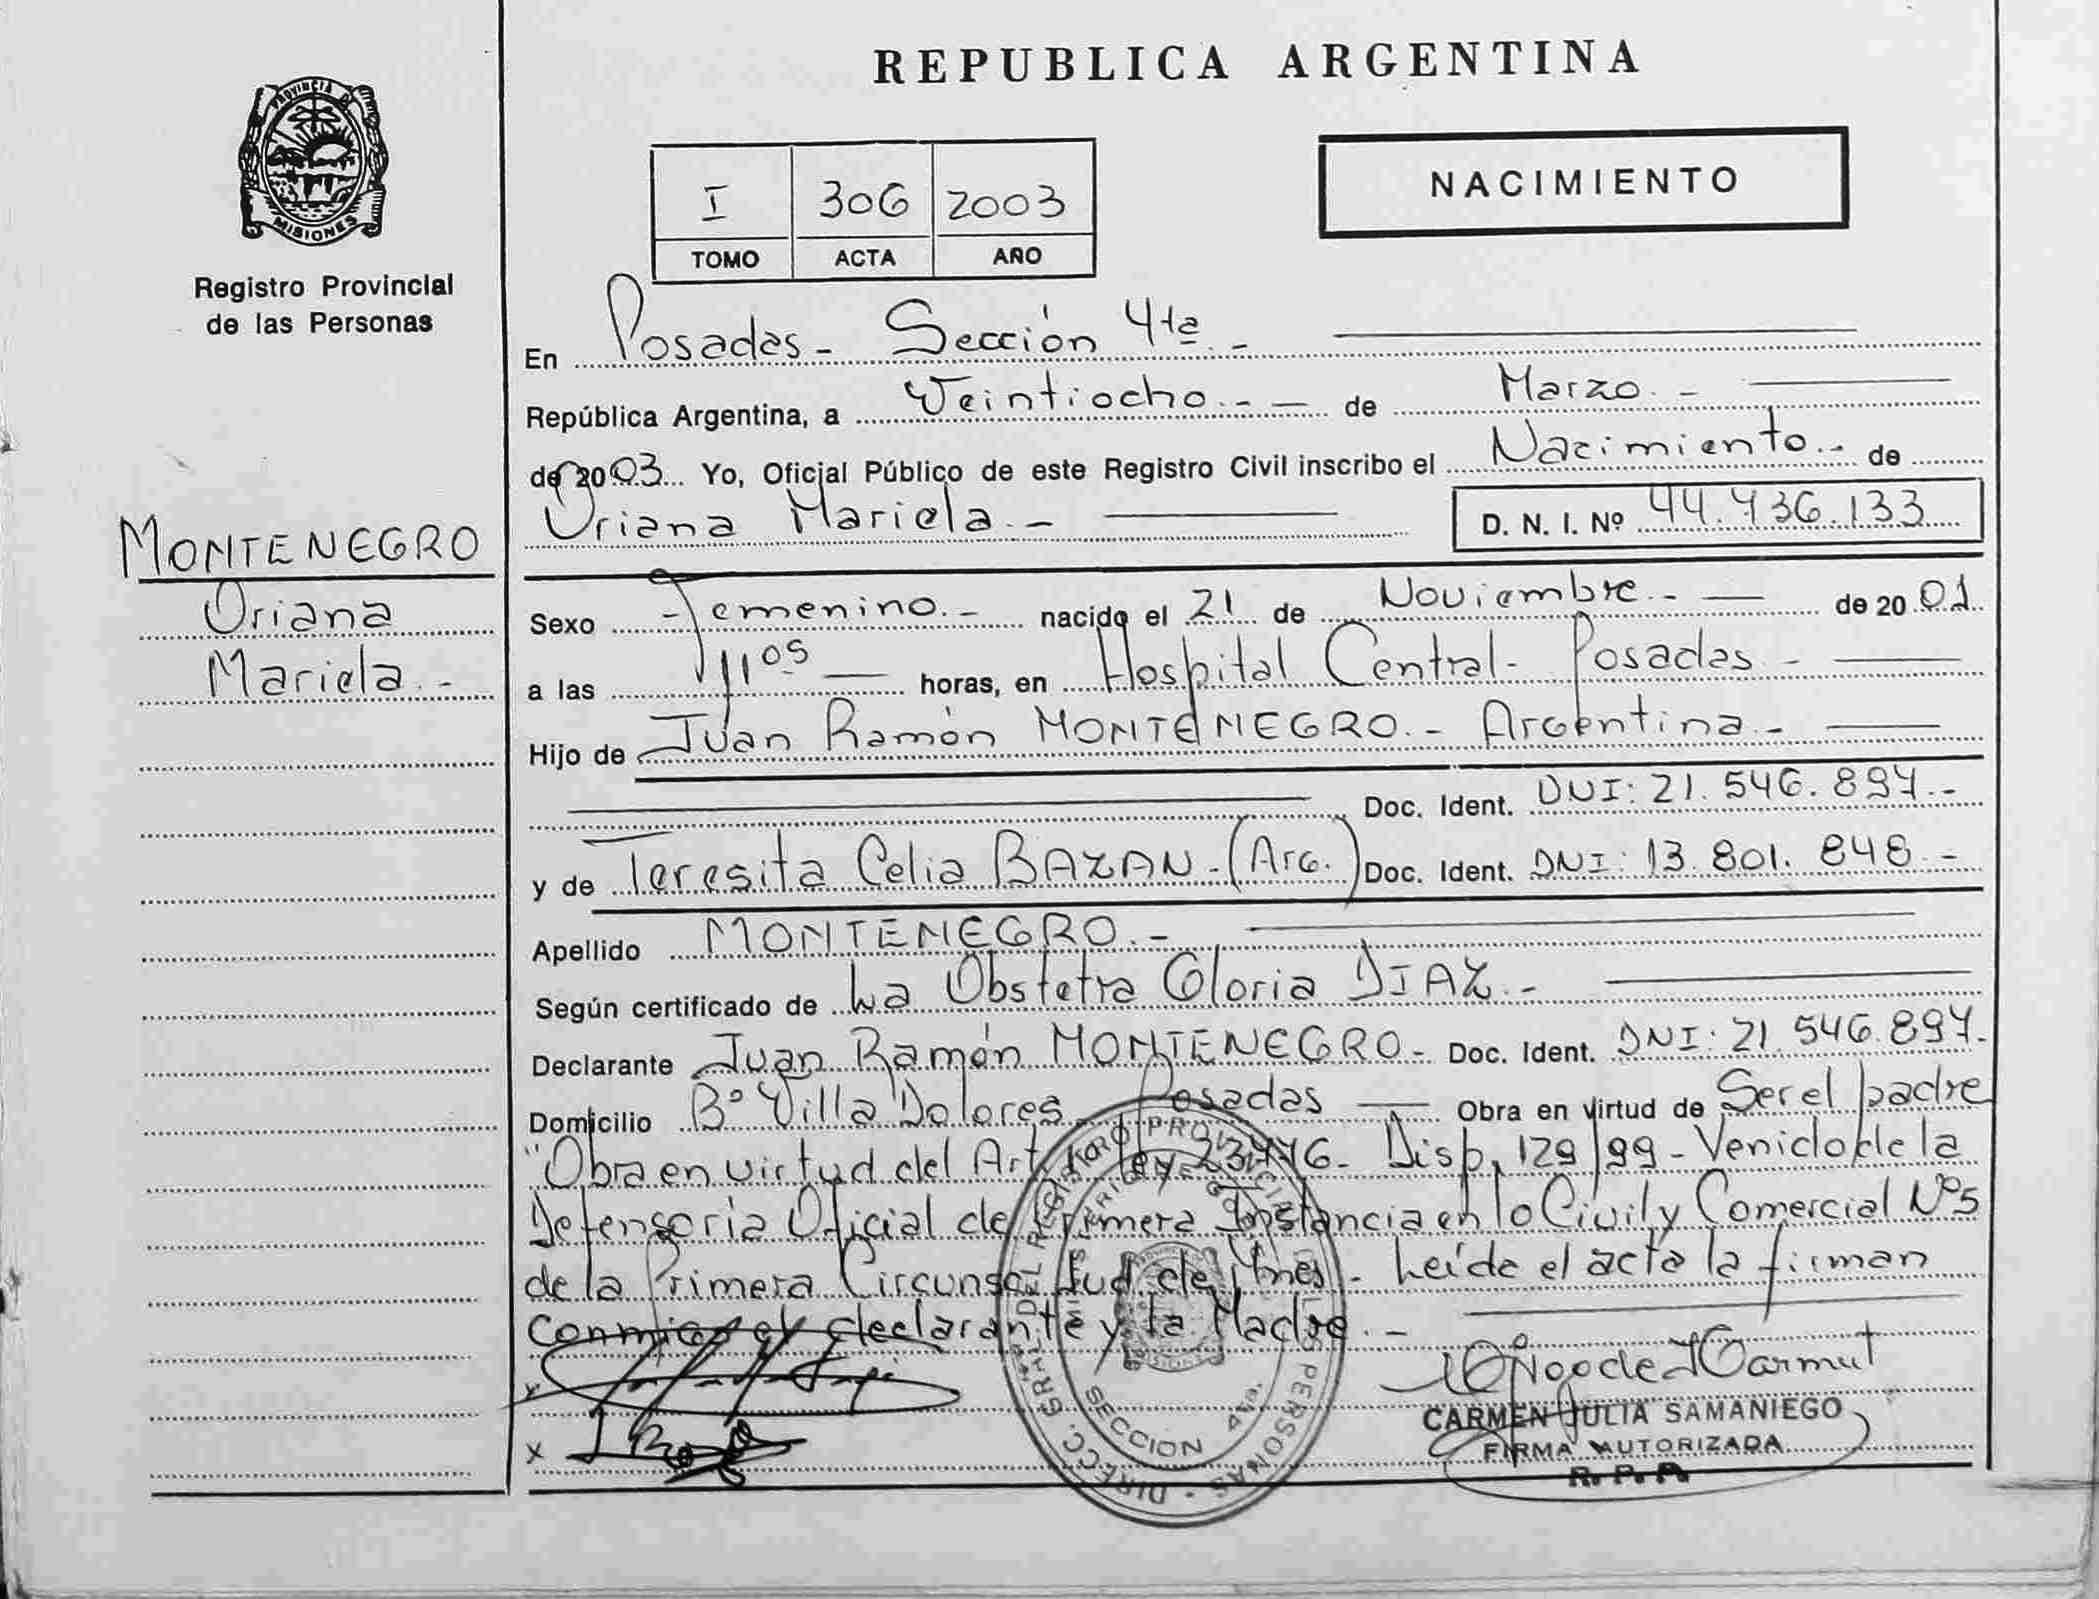 REPUBLICA ARGENTINA
PROVINCIA DE
MISIONES
Registro Provincial
de las Personas
I 306 2003
TOMO ACTA AÑO
NACIMIENTO
En Posadas - Sección 4ta. -
República Argentina, a Veintiocho. - - de Marzo. -
de 2003 Yo, Oficial Público de este Registro Civil inscribo el Nacimiento. - de
Oriana Mariela. - D. N. I. Nº 44.436.133
MONTENEGRO
Oriana
Mariela. -
Sexo Femenino. - nacido el 21 de Noviembre. - de 20 01
a las 11 05 horas, en Hospital Central - Posadas -
Hijo de Juan Ramón MONTENEGRO. - Argentina. -
Doc. Ident. DNI: 21.546.897. -
y de Teresita Celia BAZAN - (Arg.) Doc. Ident. DNI: 13.801.848. -
Apellido MONTENEGRO. -
Según certificado de La Obstetra Gloria DIAZ. -
Declarante Juan Ramón MONTENEGRO - Doc. Ident. DNI: 21.546.897.
Domicilio Bº Villa Dolores Posadas Obra en virtud de Ser el padre
"Obra en virtud del Art. Ley 23776 - Disp. 129/99 - Venido de la
Defensoría Oficial de Primera Instancia en lo Civil y Comercial Nº 5
de la Primera Circunsc. Jud. de Mnes. - Leída el acta la firman
conmigo el declarante y la Madre. -
DIRECC. GRAL. DEL REGISTRO PROVINCIAL DE LAS PERSONAS
MINISTERIO DE GOBIERNO
SECCION 4ta.
CARMEN JULIA SAMANIEGO
FIRMA AUTORIZADA
R. P. P.